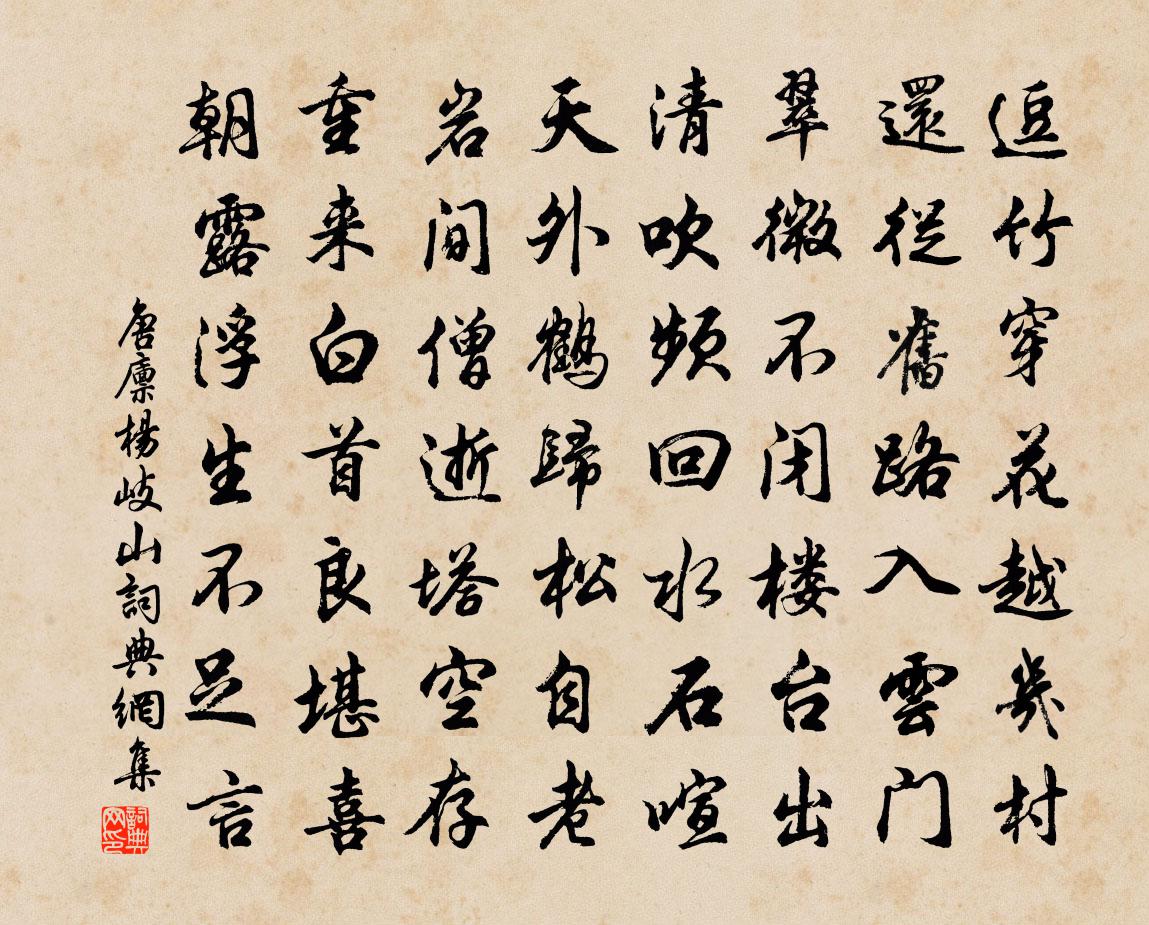 逗竹穿花越幾村
還從舊路入雲门
翠微不闭楼台出
清吹频回水石喧
天外鹤歸松自老
岩间僧逝塔空存
重来白首良堪喜
朝露浮生不足言
唐廪楊岐山詞典網集
詞典网印